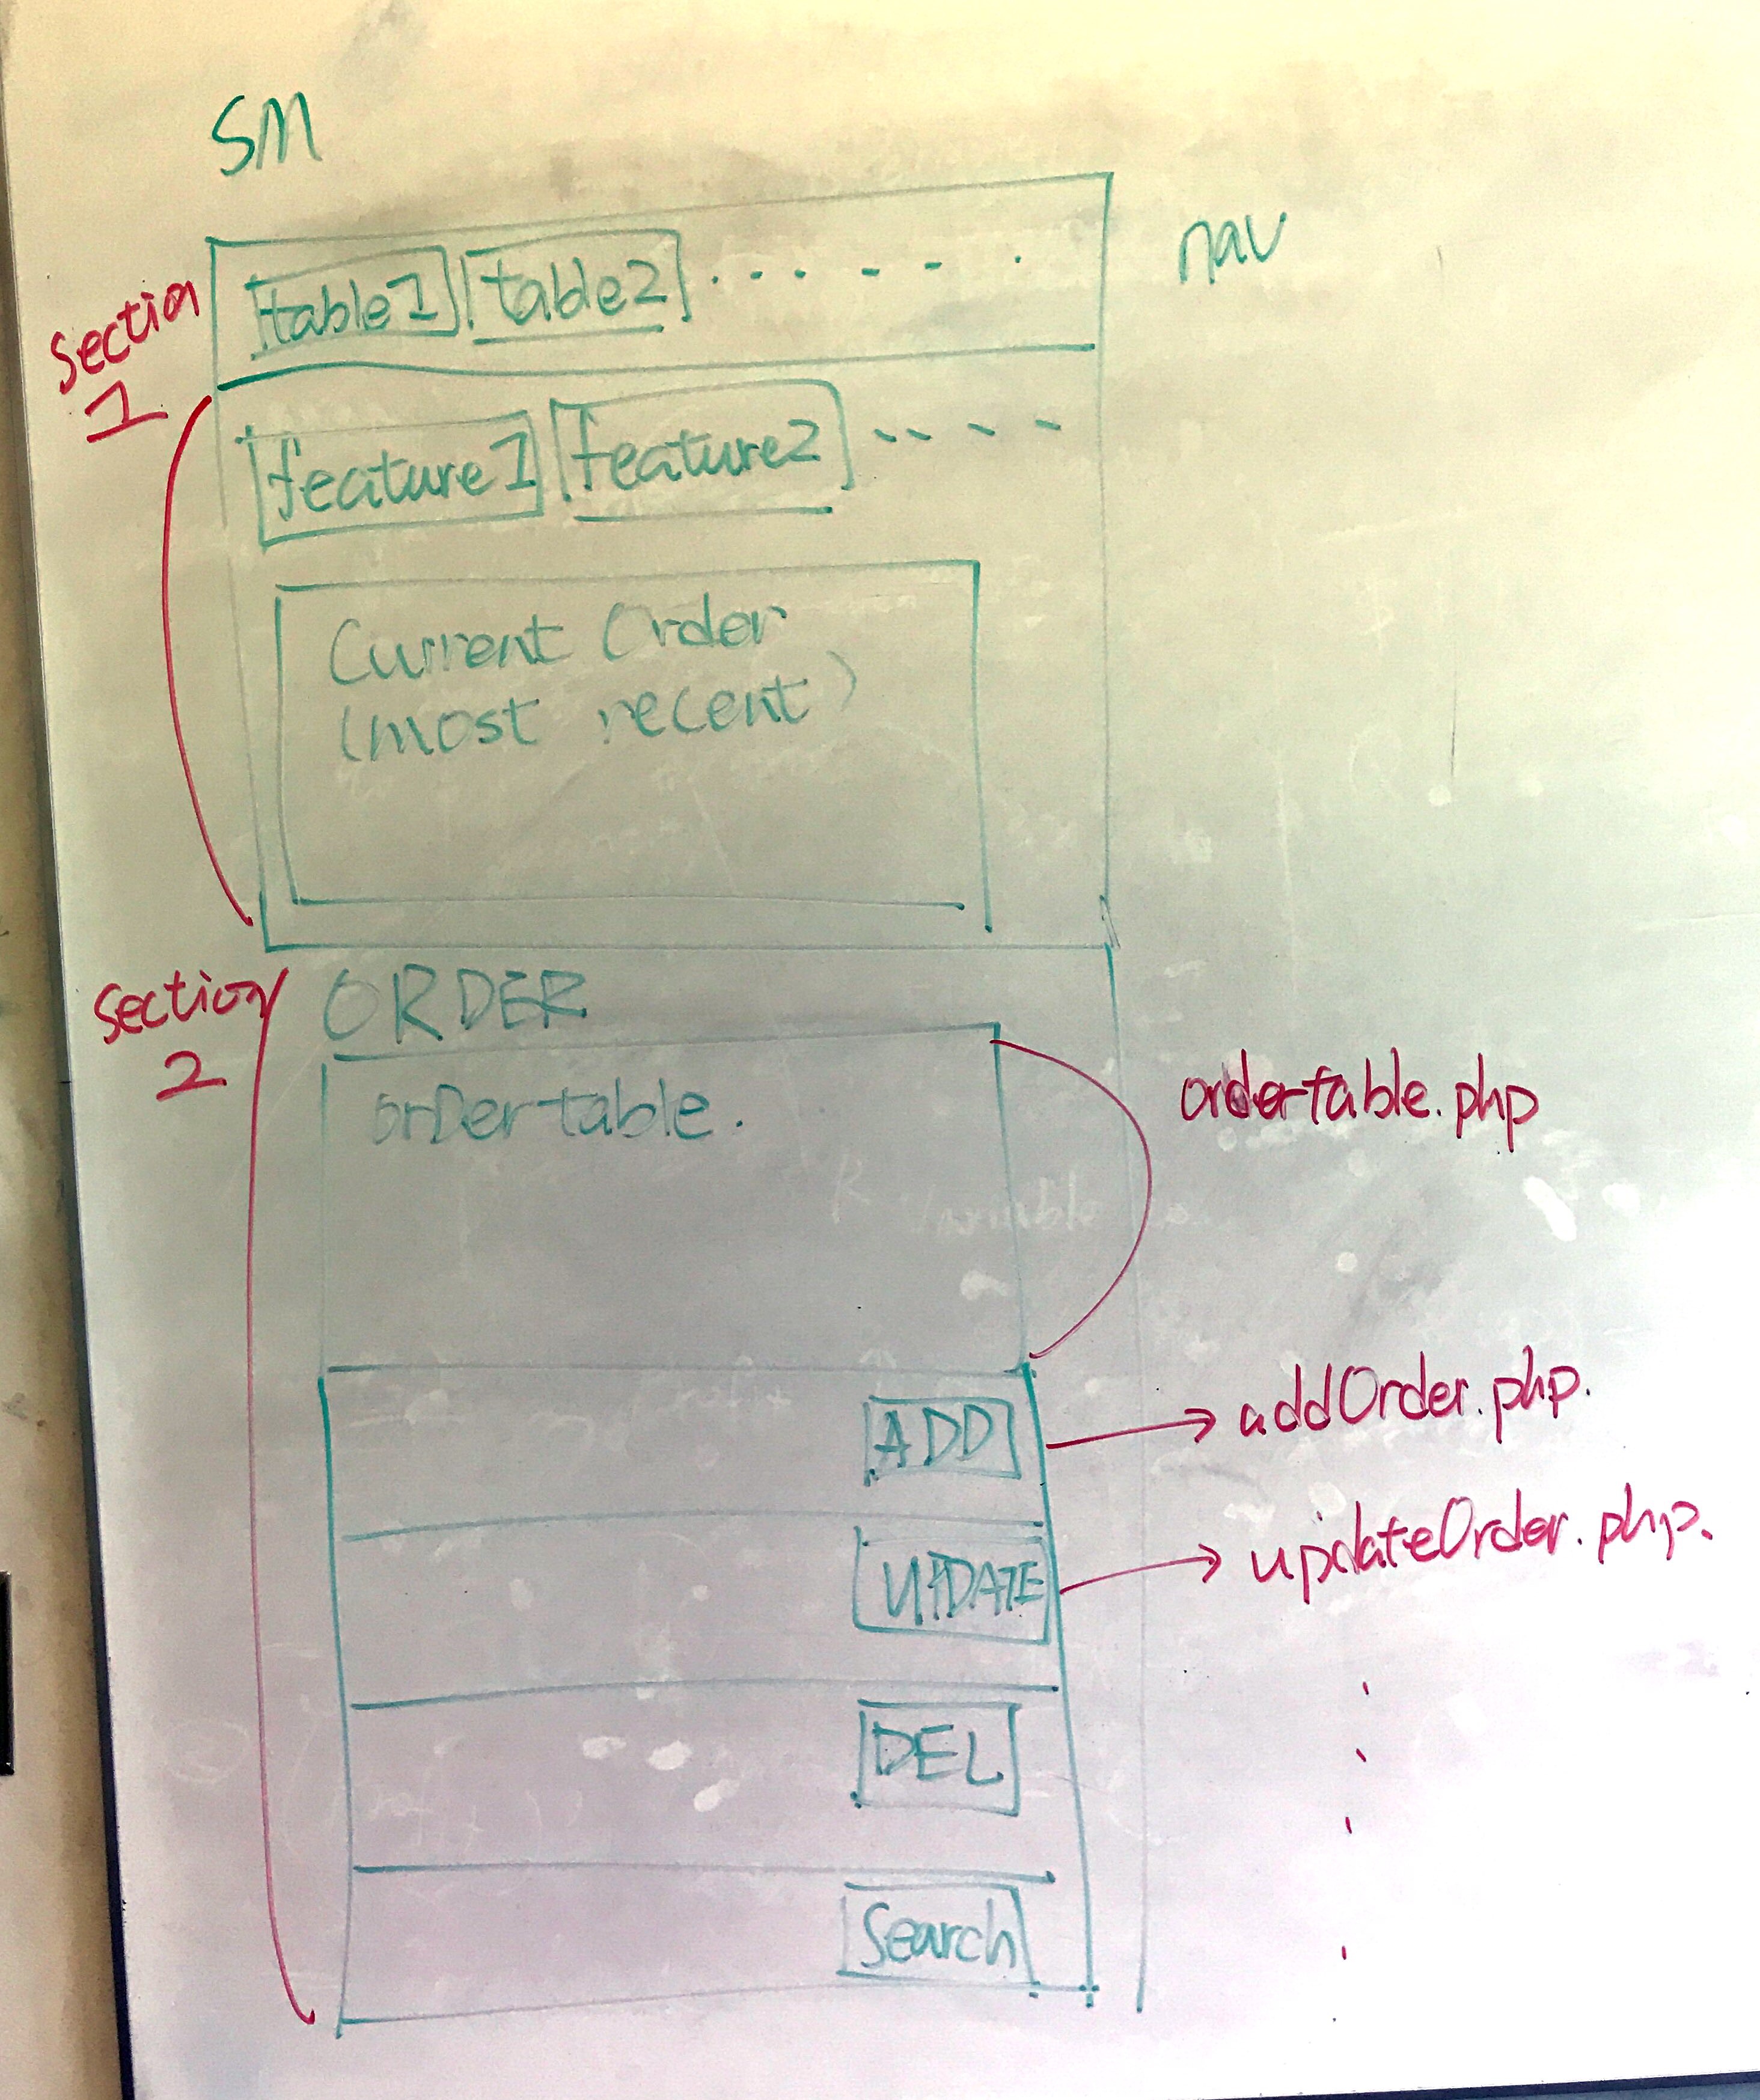 SM
nav
table1 table2
Section
1
feature1 feature2
Current Order
(most recent)
Section
2
ORDER
orDertable.
ordertable.php
ADD
addOrder.php.
UPDATE
updateOrder.php.
DEL
Search